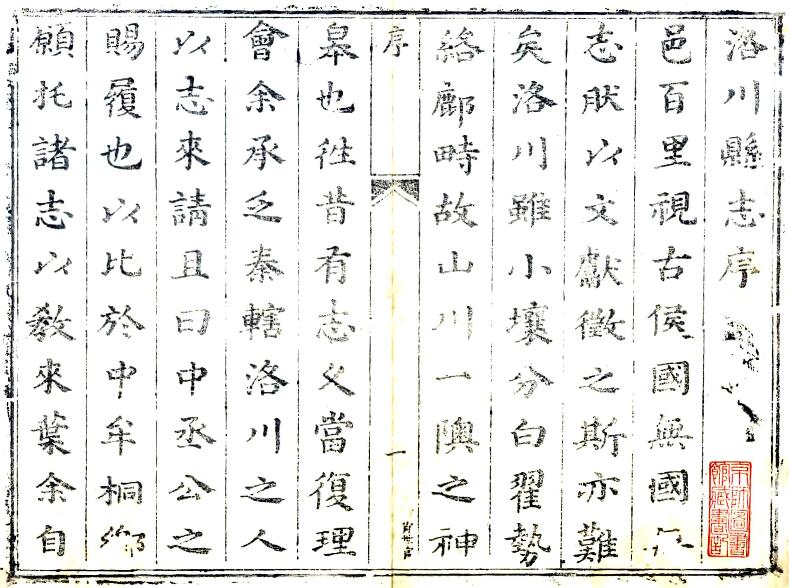 洛川縣志序
邑百里視古侯國無國
志肰以文獻徵之斯亦難
矣洛川雖小壤分白翟勢
絡鄜畤故山川一隩之神
序
一
皋也徃昔有志久當復理
會余承乏秦轄洛川之人
以志來請且曰中丞公之
賜履也以比於中牟桐鄉
願托諸志以敎來葉余自
京師圖書
館藏書記